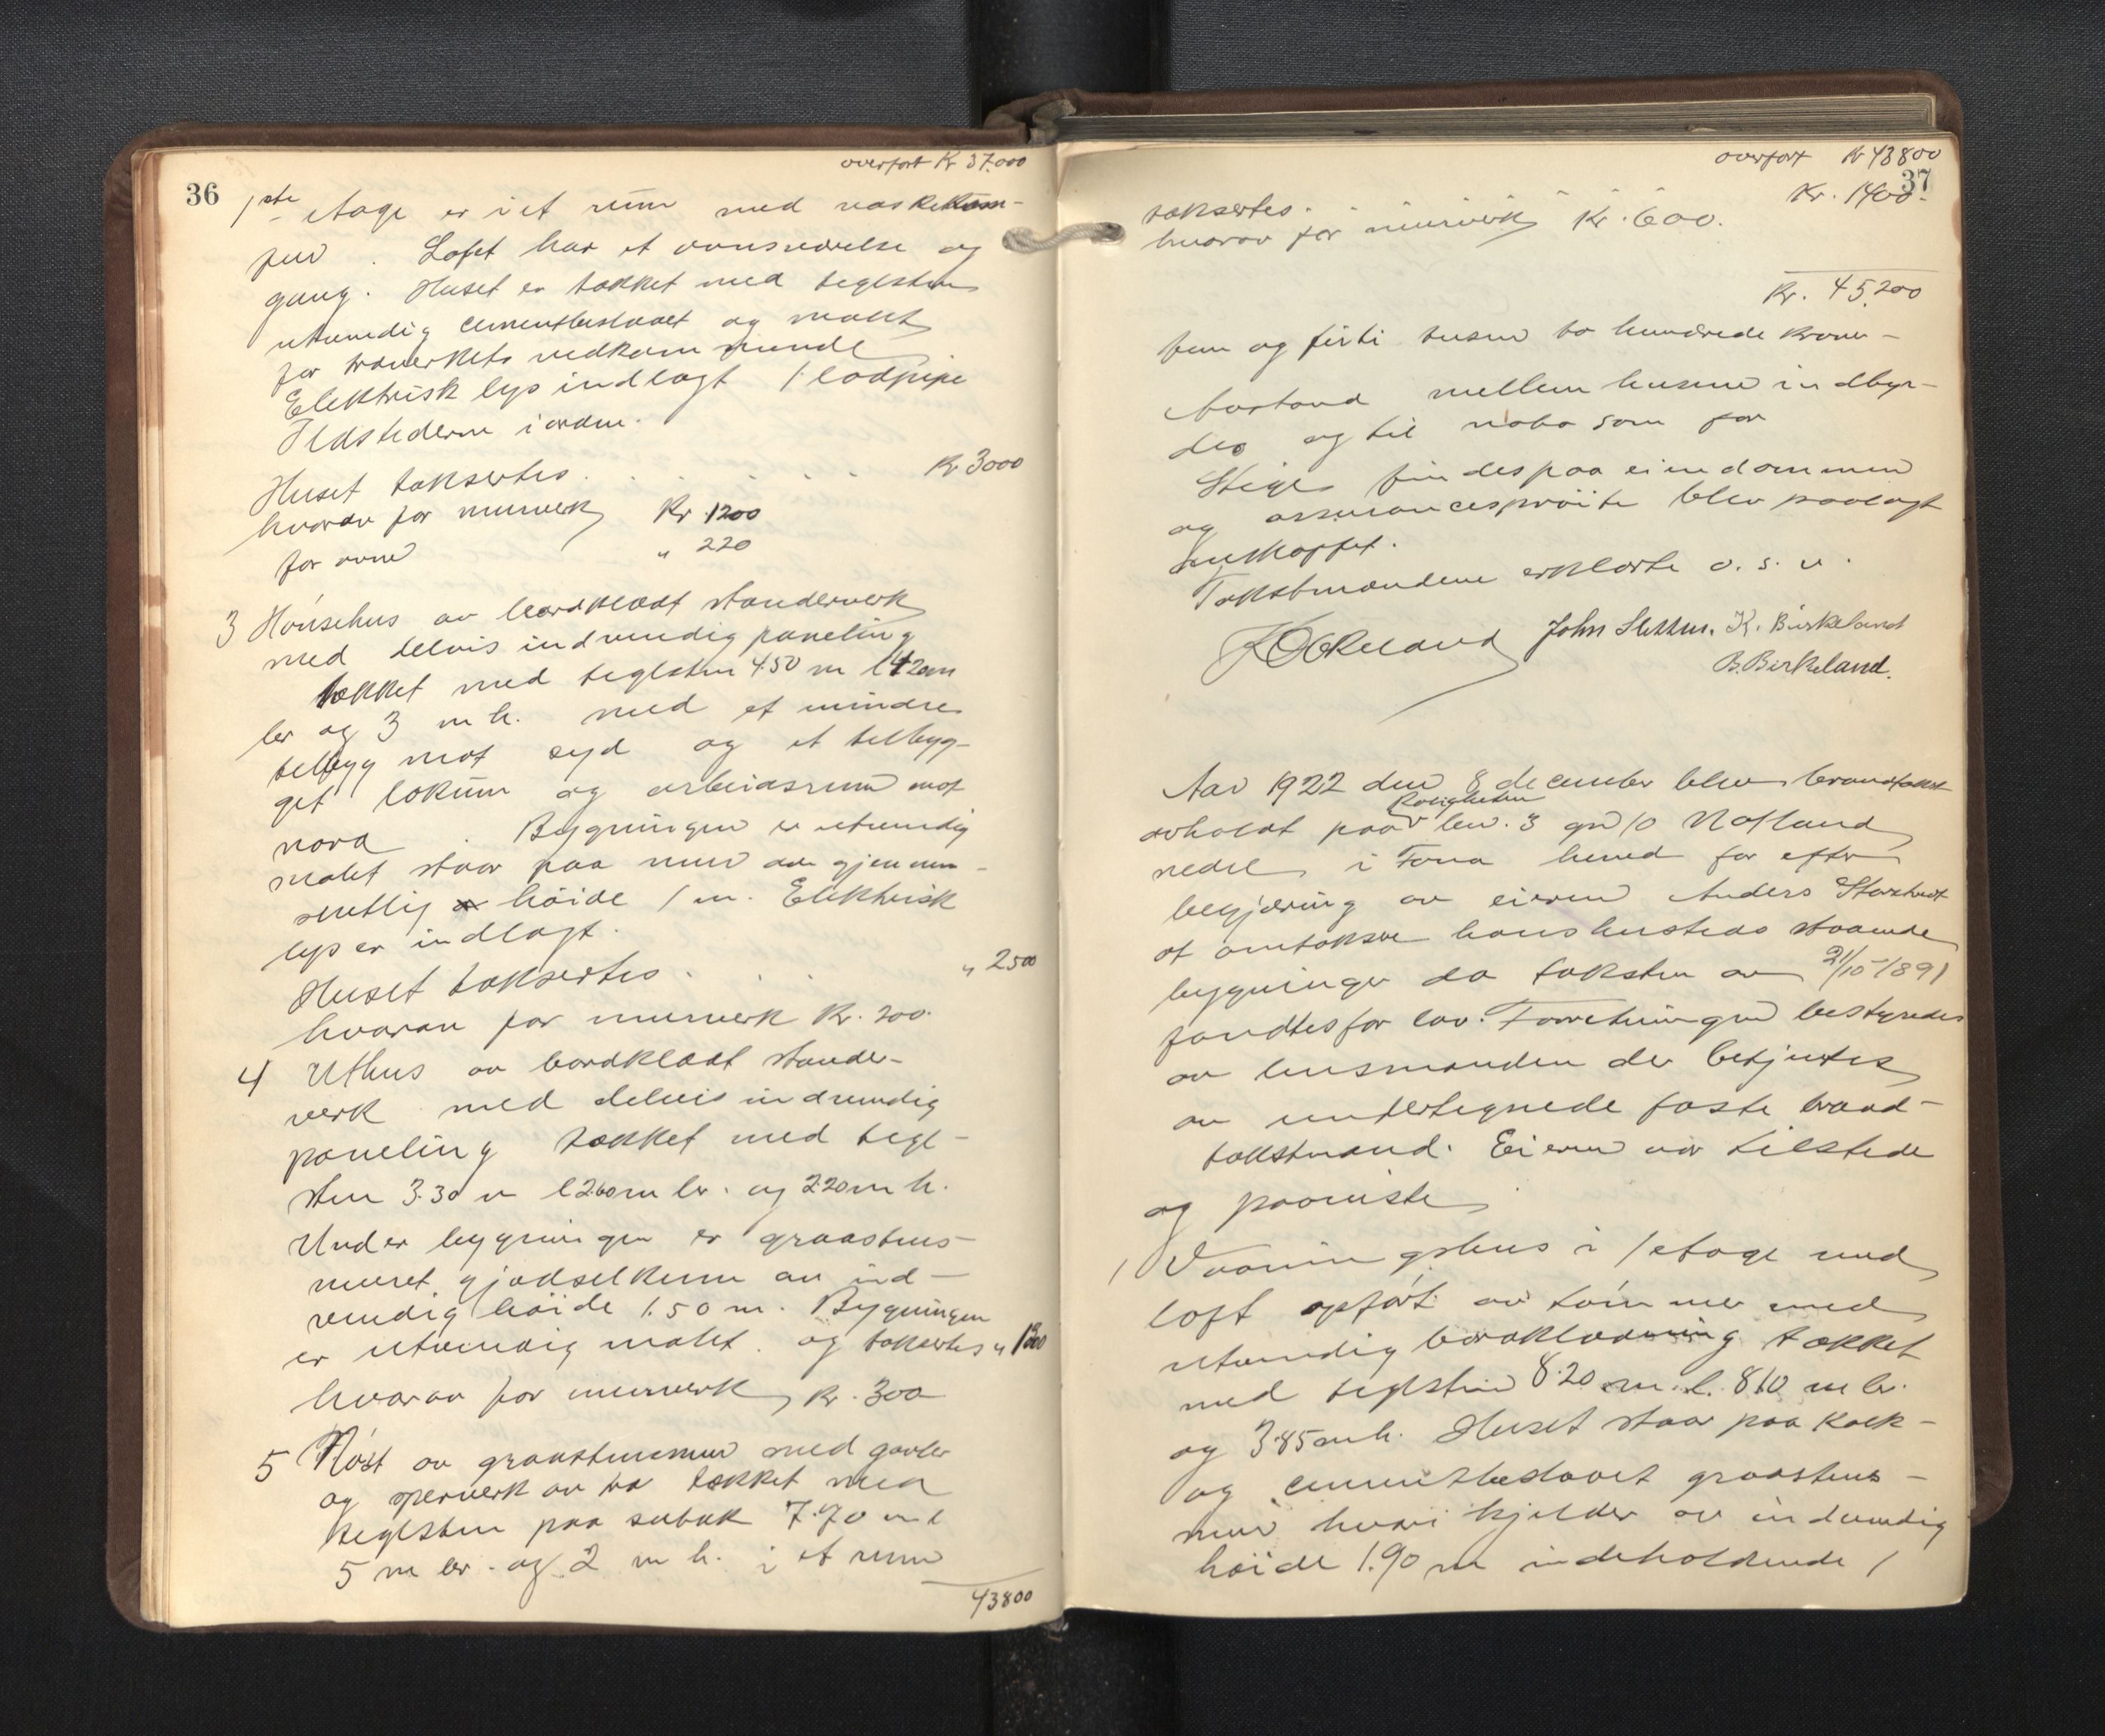 overført Kr 37.000
36
1ste etage er i et rum med vaskekom-
fur. Loftet har et ovnsværelse og
gang. Huset er tækket med teglsten
utvendig cementbeslaaet og malt
for træverkets vedkommende
Elektrisk lys indlagt 1 lodpipe
Ildstederne i orden.
Huset taksertes . . . . Kr 3000
hvorav for murverk Kr. 1200
for ovne " 220
3 Hønsehus av bordklædt standerverk
med delvis indvendig paneling
tækket med teglsten 4.50 m l 4.20m
br og 3 m h. med et mindre
tilbygg mot syd og et tilbyg-
get lokum og arbeidsrum mot
nord. Bygningen er utvendig
malet staar paa mur av gjennem-
snitlig høide 1 m. Elektrisk
lys er indlagt.
Huset taksertes . . . " 2500
hvorav for murverk Kr. 200.
4 Uthus av bordklædt stander-
verk med delvis indvendig
paneling tækket med tegl-
sten 3.30 m l 2.60m br. og 2.20m h.
Under bygningen er graastens-
muret gjødselkum av ind-
vendig høide 1.50 m. Bygningen
er utvendig malet og taksertes " 1300
hvorav for murverk Kr. 300
5 Nøst av graastensmur med gavler
og sperverk av træ tækket med
teglsten paa sutak 7.70 m l
5 m br. og 2 m h. i et rum
43800
overført Kr 43800
37
taksertes. Kr. 1400.
hvorav for murverk Kr. 600.
Kr. 45.200
fem og førti tusen to hundrede kroner -
Avstand mellem husene indbyr-
des og til nabo som før
Stiger findes paa eiendommen
og assurancesprøite blev paalagt
indskaffet.
Takstmændene erklærte o. s. v.
John Sletten. K. Birkeland
B. Birkeland.
Aar 1922 den 8 december blev brandtakst
avholdt paa Roligheten brn. 3 gn 10 Natland
nedre i Fana herred for efter
begjæring av eieren Anders Storetvedt
at omtaksere hans husteds staaende
bygninger da taksten av 21/10 1891
fandtes for lav. Forretningen bestyredes
av lensmanden der betjentes
av undertegnede faste brand-
takstmænd. Eieren var tilstede
og paaviste
1 Vaaningshus i 1 etage med
loft opført av tømmer med
utvendig bordklædning tækket
med teglsten 8.20 m. l. 8.10 m br.
og 3.85 m h. Huset staar paa kalk-
og cementbeslaaet graastens-
mur hvori kjelder av indvendig
høide 1.90 m indeholdende 1